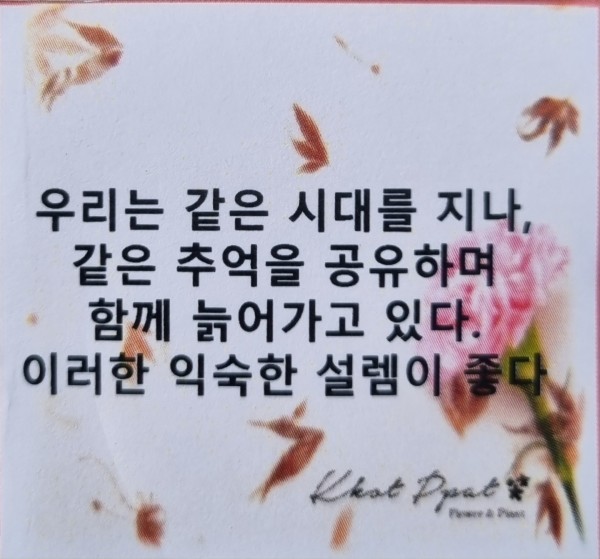 우리는 같은 시대를 지나,
같은 추억을 공유하며
함께 늙어가고 있다.
이러한 익숙한 설렘이 좋다
Kkot Ppat
Flower & Plant